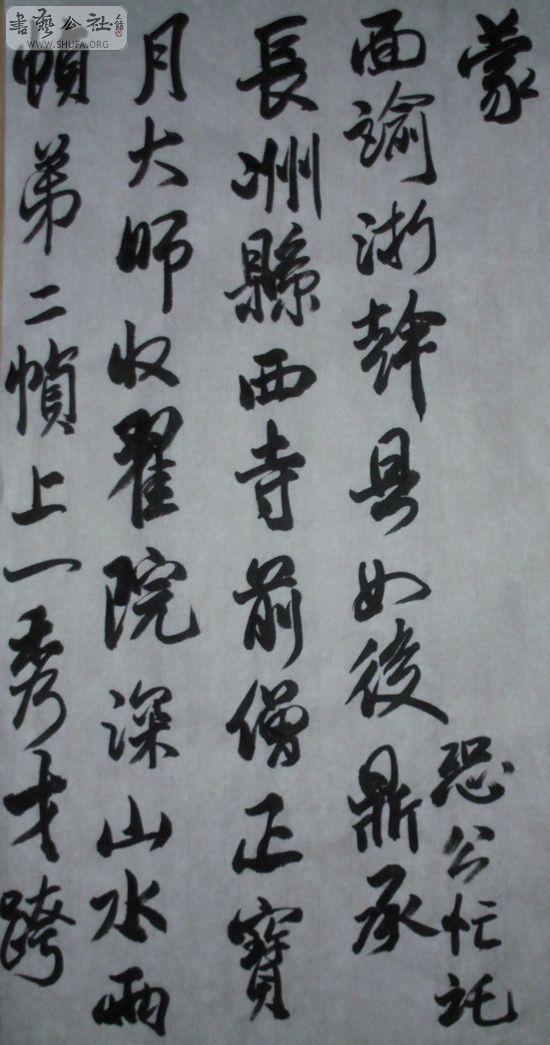 蒙
恐公忙託
面諭浙幹具如後鼎承
長洲縣西寺前僧正寶
月大師收翟院深山水兩
幀第二幀上一秀才跨
書藝公社
WWW.SHUFA.ORG